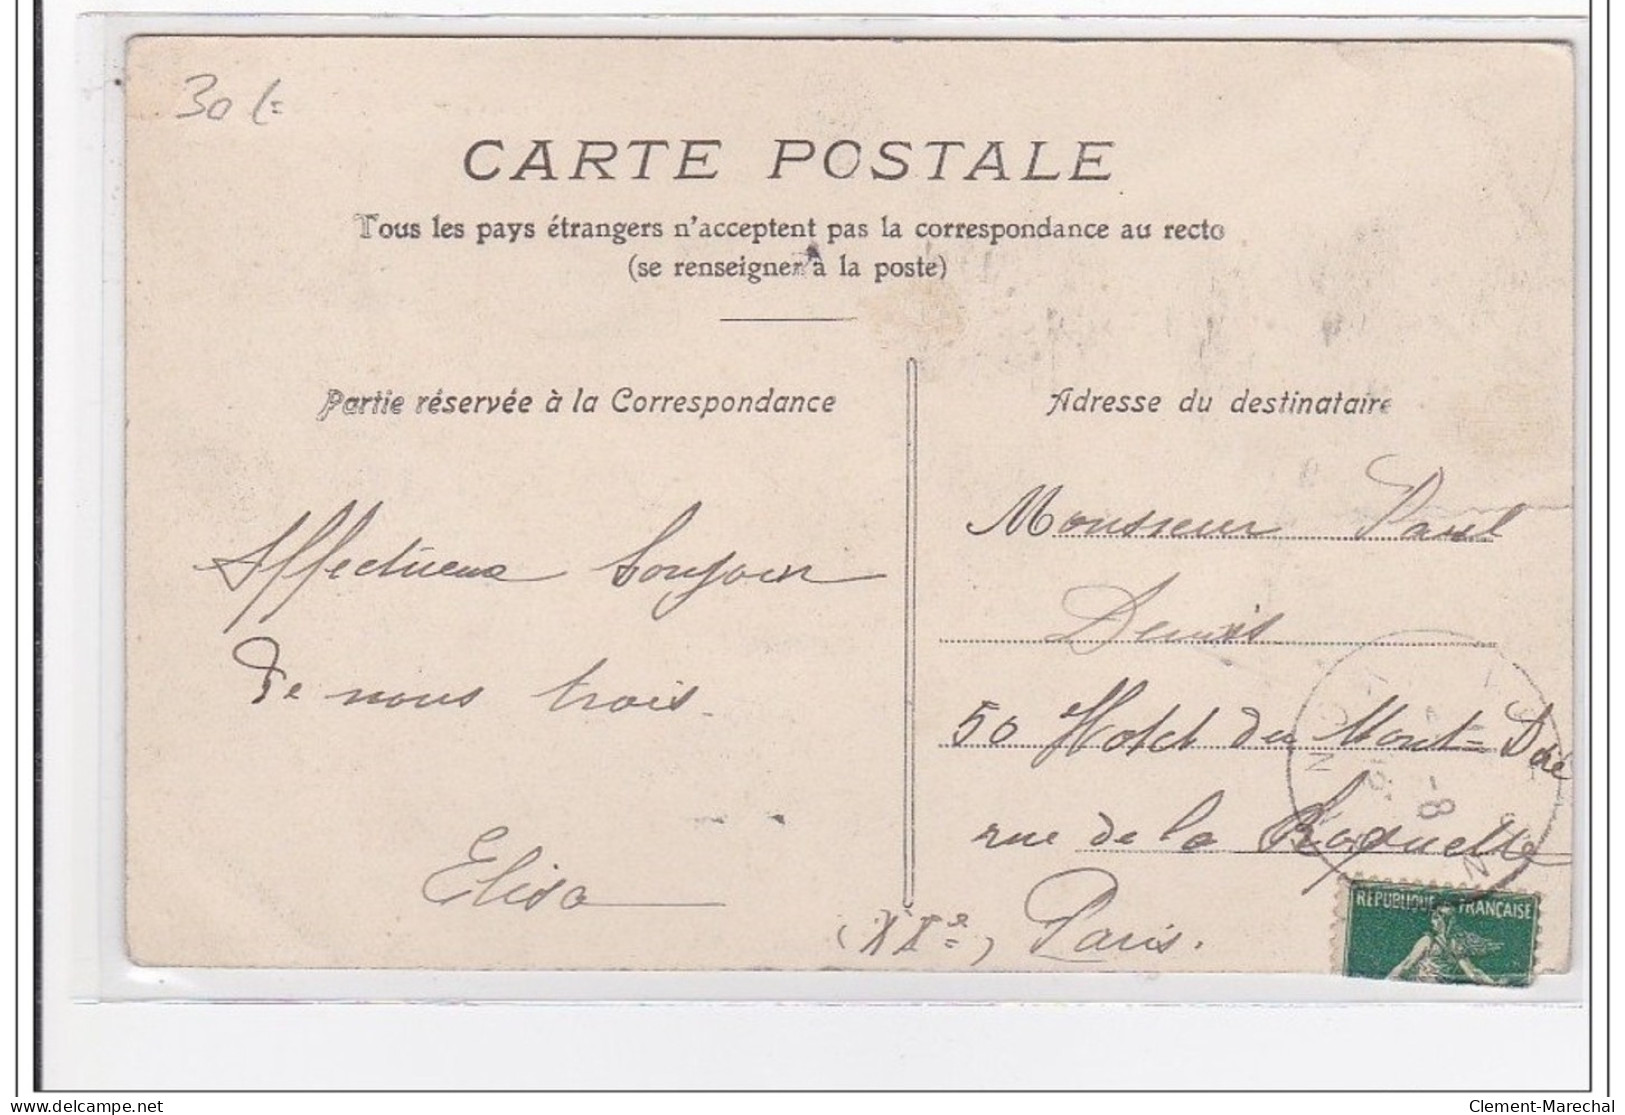 30 f=
CARTE POSTALE
Tous les pays étrangers n'acceptent pas la correspondance au recto
(se renseigner à la poste)
Partie réservée à la Correspondance
Affectueux
de nous trois.
Elisa
Adresse du destinataire
Monsieur Paul
Denis
50 Hotel du Mont-Dore
rue de la Roquette
(XIe) Paris.
RÉPUBLIQUE FRANÇAISE
delcampe.net
Clement-Marechal